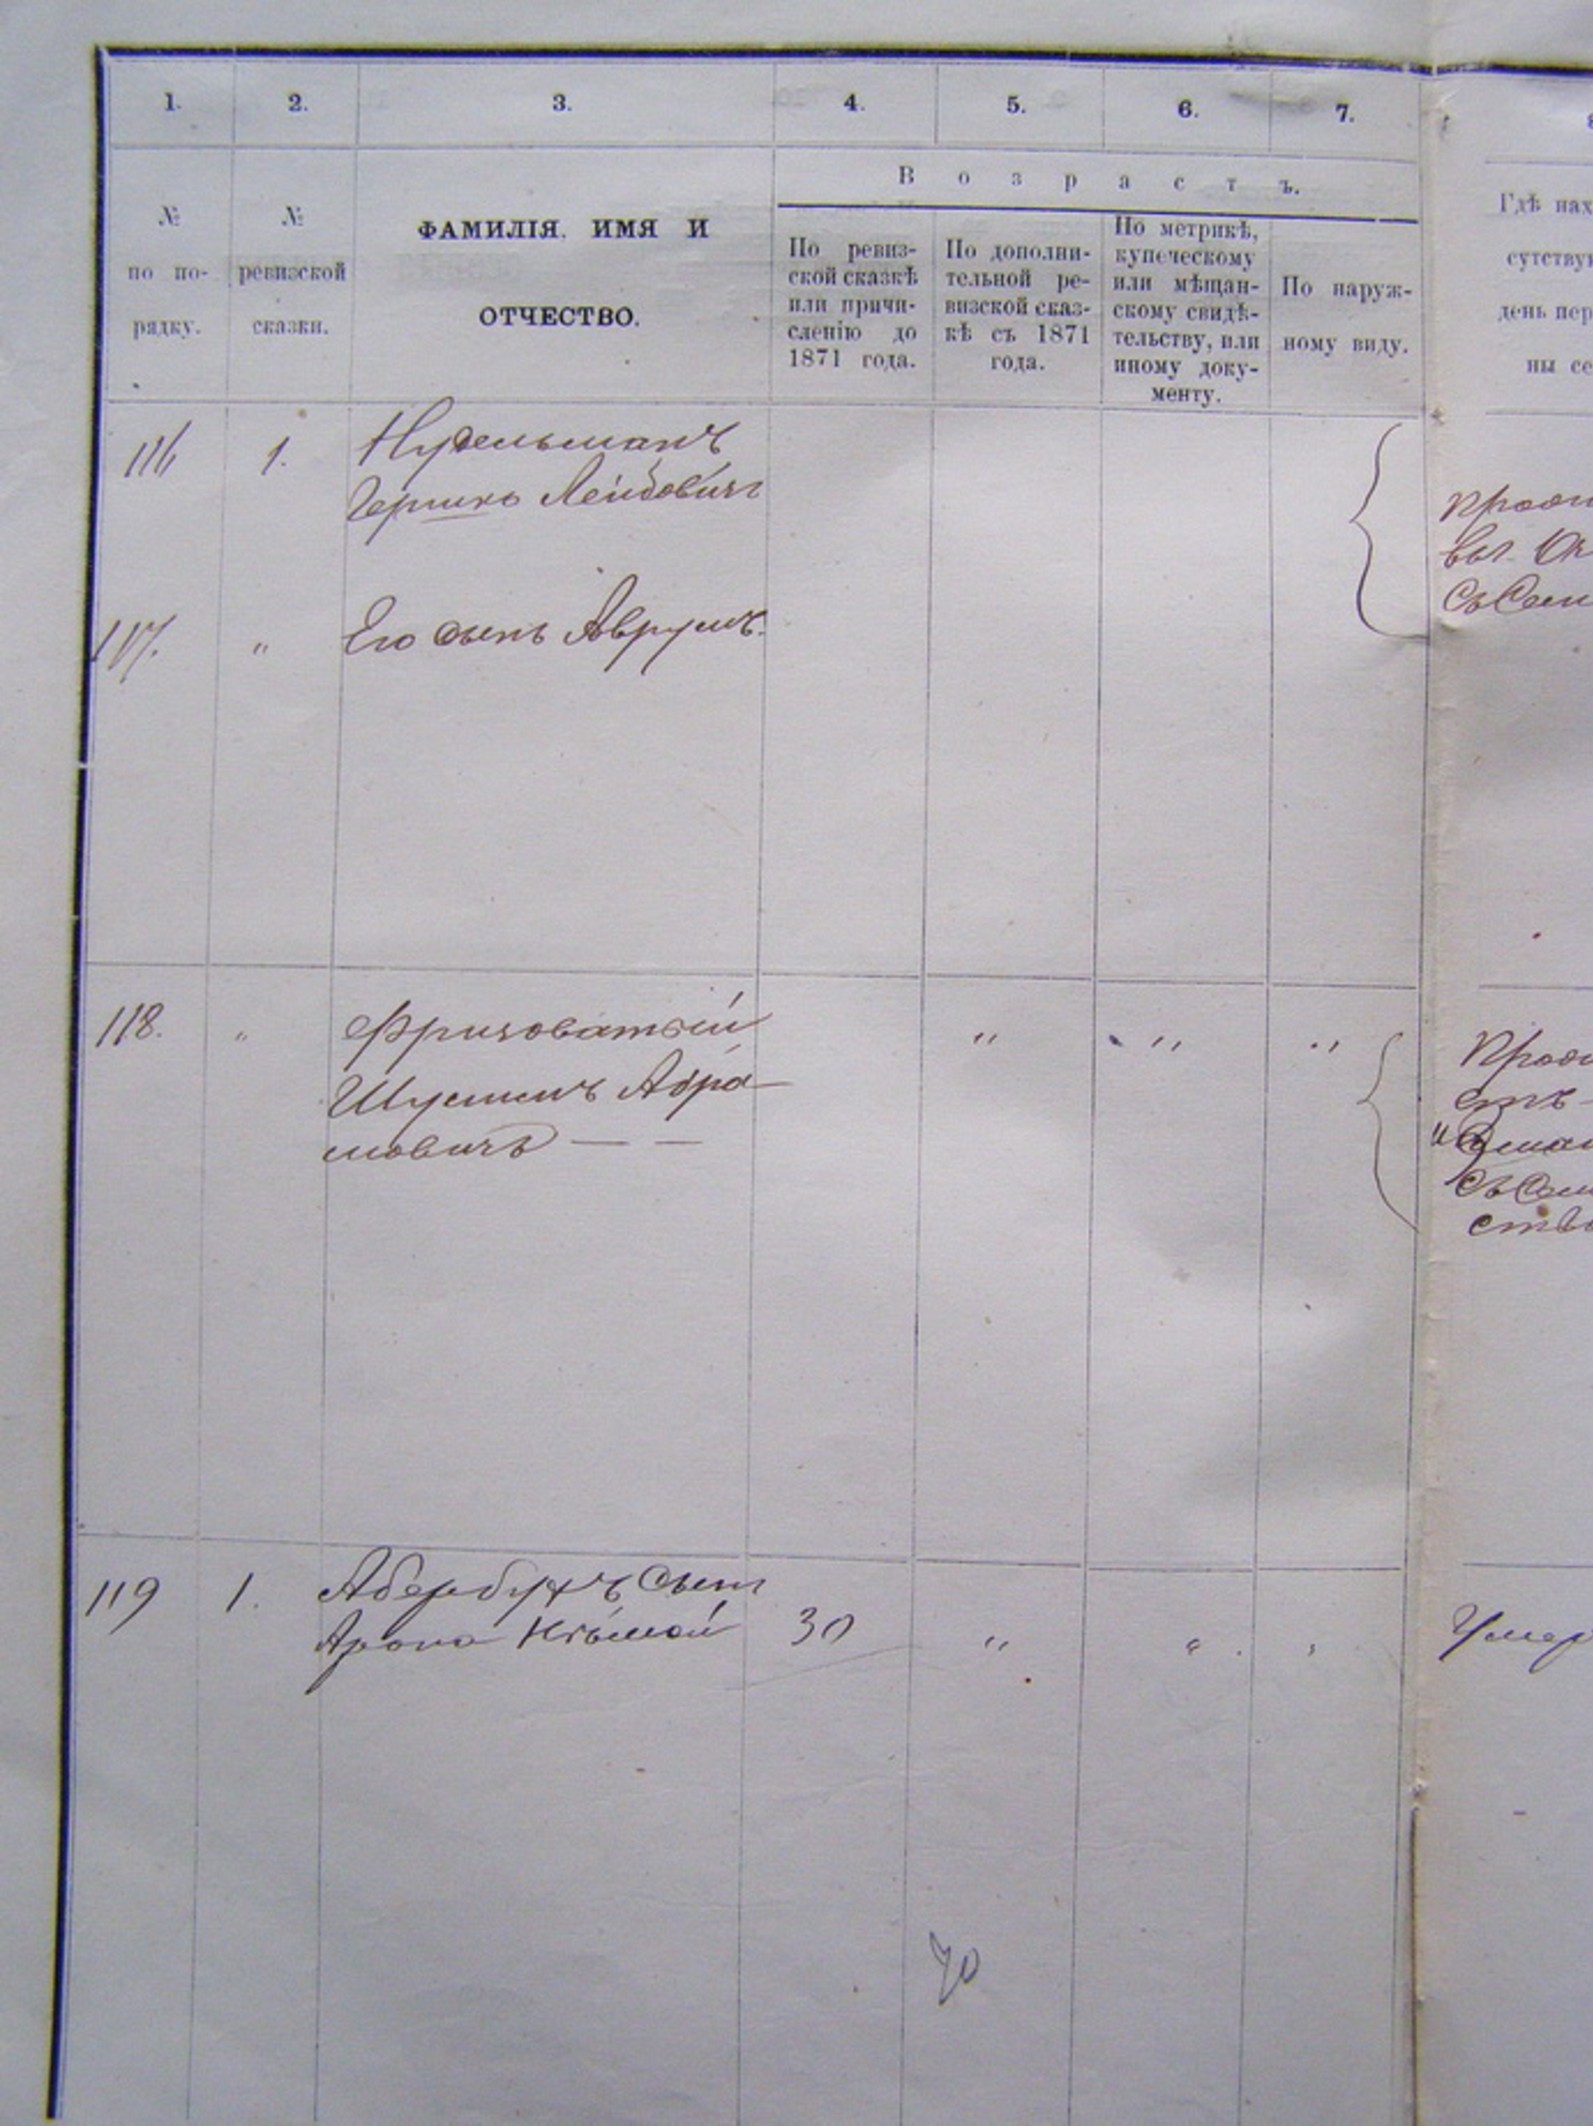 1. 2. 3. 4. 5. 6. 7.
В о з р а с т ъ.
№ по по- рядку.
№ ревизской сказки.
ФАМИЛІЯ. ИМЯ И
ОТЧЕСТВО.
По ревиз-
ской сказкѣ
или причи-
сленію до
1871 года.
По дополни-
тельной ре-
визской сказ-
кѣ съ 1871
года.
По метрикѣ,
купеческому
или мѣщан-
скому свидѣ-
тельству, или
иному доку-
менту.
По наруж-
ному виду.
Гдѣ нах
сутствую
день пер
ны се
116 1. Нудельманъ
Гершко Лейбовичъ
117. " Его сынъ Аврумъ.
съ Сем
118. " " " "
Шулимъ Абра-
мовичъ — —
съ Сем
ство
119 1. Авербухъ сынъ
Арона Нѣмой 30 " "
Умер
70